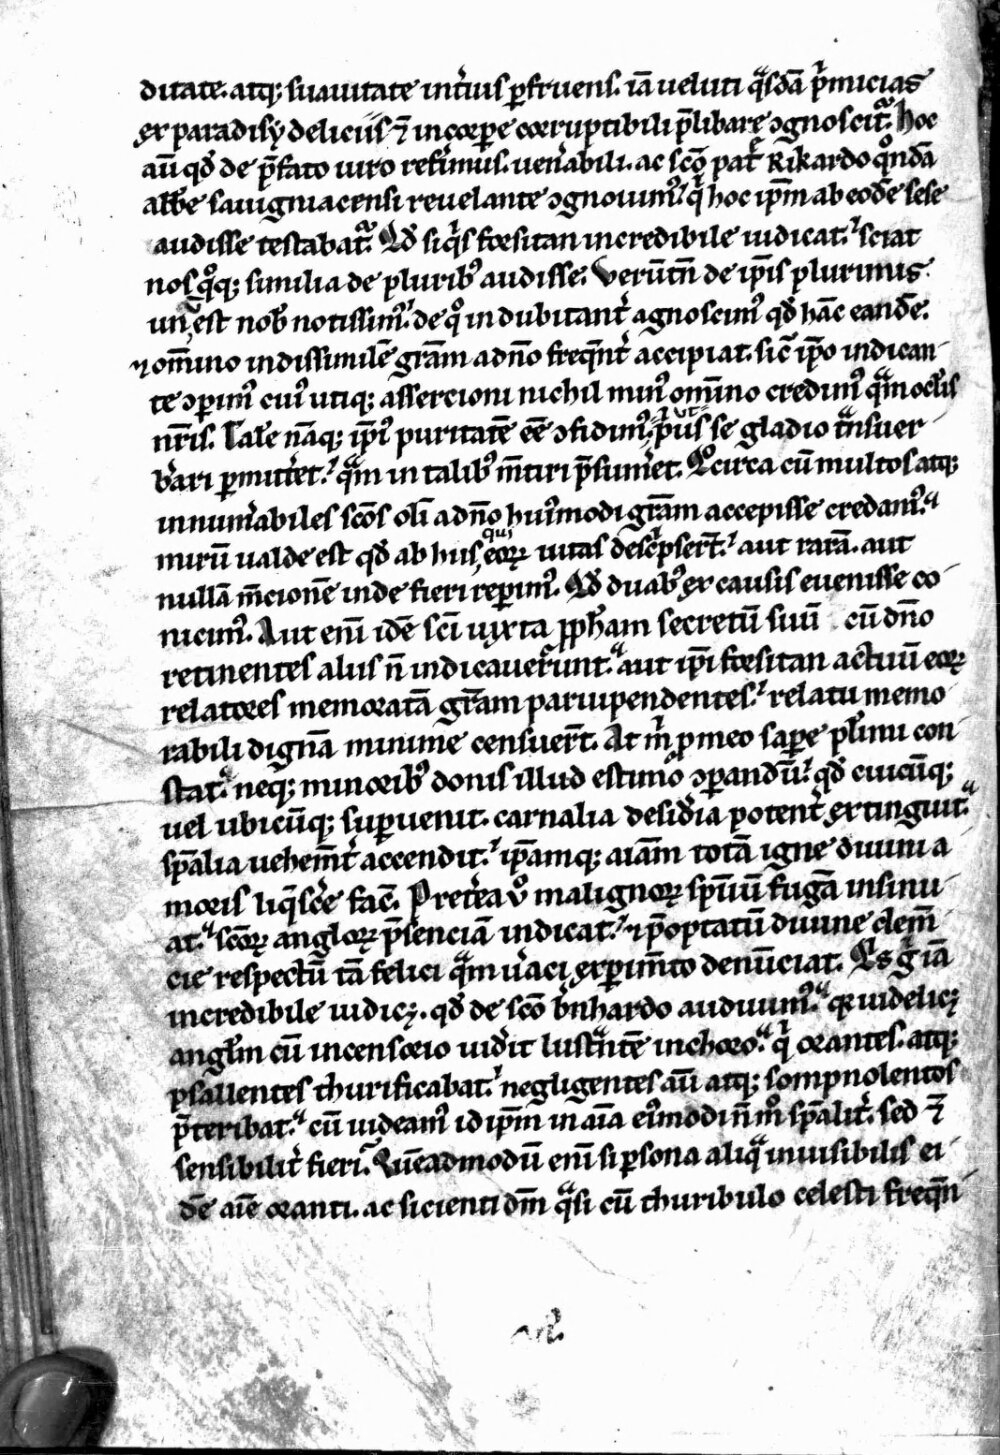 ditate. atq; suauitate int̾ius ꝑfruens. iā ueluti qͣsdā pͥmicias
ex paradisẏ deliciis ⁊ in corꝑe corruptibili p̄libare ꝯgnoscit᷑. hoc
aū qd̄ de p̄fato uiro ref̾imus. uen̾abili. ac sc̄o patͥ Rikardo qͦndā
abb̄e sauigniacensi reuelante ꝯgnouimꝰ. qͥ hoc ip̄m ab eodē sese
audisse testabat᷑. Qd̄ siqͥs forsitan incredibile iudicat. sciat
nos qͦq; similia de pluribꝰ audisse. Verūtn̄ de ip̄is plurimis
unꝰ est nob̄ notissimꝰ. de qͦ indubitant̾ agnoscimꝰ qd̄ hāc eandē.
⁊ om̄ino indissimilē gr̄am a dn̄o freqn̄t̾ accipiat. sic̄ ip̄o indican
te ꝯꝑimꝰ cuiꝰ utiq; assercioni nichil minꝰ om̄ino credimꝰ qͣm oclis̄
nr̄is. Tale nāq; ipīꝰ puritatē eē ꝯfidimꝰ, ut pͥus se gladio tͣnsuer
b̾ari ꝑmitt̾et. qͣm in talibꝰ m̄tiri p̄sum̾et. Qͦcirca cū multos atq;
innum̾abiles sc̄os olī a dn̄o huiꝰmodi gr̄am accepisse credamꝰ.
mirū ualde est qd̄ ab hiis, qui eoꝝ uitas desc̾pser̄t. aut rarā. aut
nullā m̄cionē inde fieri reꝑimꝰ. Qd̄ duabꝰ ex causis euenisse co
nicimꝰ. Aut enī idē sc̄i iuxta ꝓph̄am secretū suū cū dn̄o
retinentes aliis n̄ indicauer̄unt. aut ip̄i forsitan actuū eoꝝ
relatores memoratā gr̄am paruipendentes. relatu memo
rabili dignā minime censuer̄t. At mͥ ꝓ meo saꝑe plīnū con
stat. neq; minoribꝰ donis illud estimo ꝯꝑandū. qd̄ cuicūq;
uel ubicūq; suꝑuenit. carnalia desid̾ia potent̾ extinguit.
sp̄alia uehem̄t̾ accendit. ip̄amq; aīam totā igne diuini a
moris liq̄sc̾e fac̄. Pret̾ea v̾o malignoꝝ sp̄uū fugā insinu
at. sc̄oꝝ angloꝝ p̄senciā indicat. ⁊ p̄optatū diuine clem̄
cie respectū tā felici qͣm u̾aci exꝑim̄to denūciat. Qͥs gͥ iā
incredibile iudicꝫ. qd̄ de sc̄o b̾nhardo audiuimꝰ. qꝛ uidelicꝫ
angl̄m cū incensorio uid̾it lustͣntē in choro. qͥ orantes. atq;
psallentes thurificabat. negligentes aū atq; sompnolentos
p̄teribat. cū uideamꝰ id ip̄m in aīa eiꝰmodi n̄ mͦ sp̄alit̾. sed ⁊
sensibilit̾ fieri. Quēadmodū enī si ꝑsona aliqͣ inuisibilis ei
dē aīe oranti. ac sicienti dm̄ qͣsi cū thuribulo celesti freqn̄